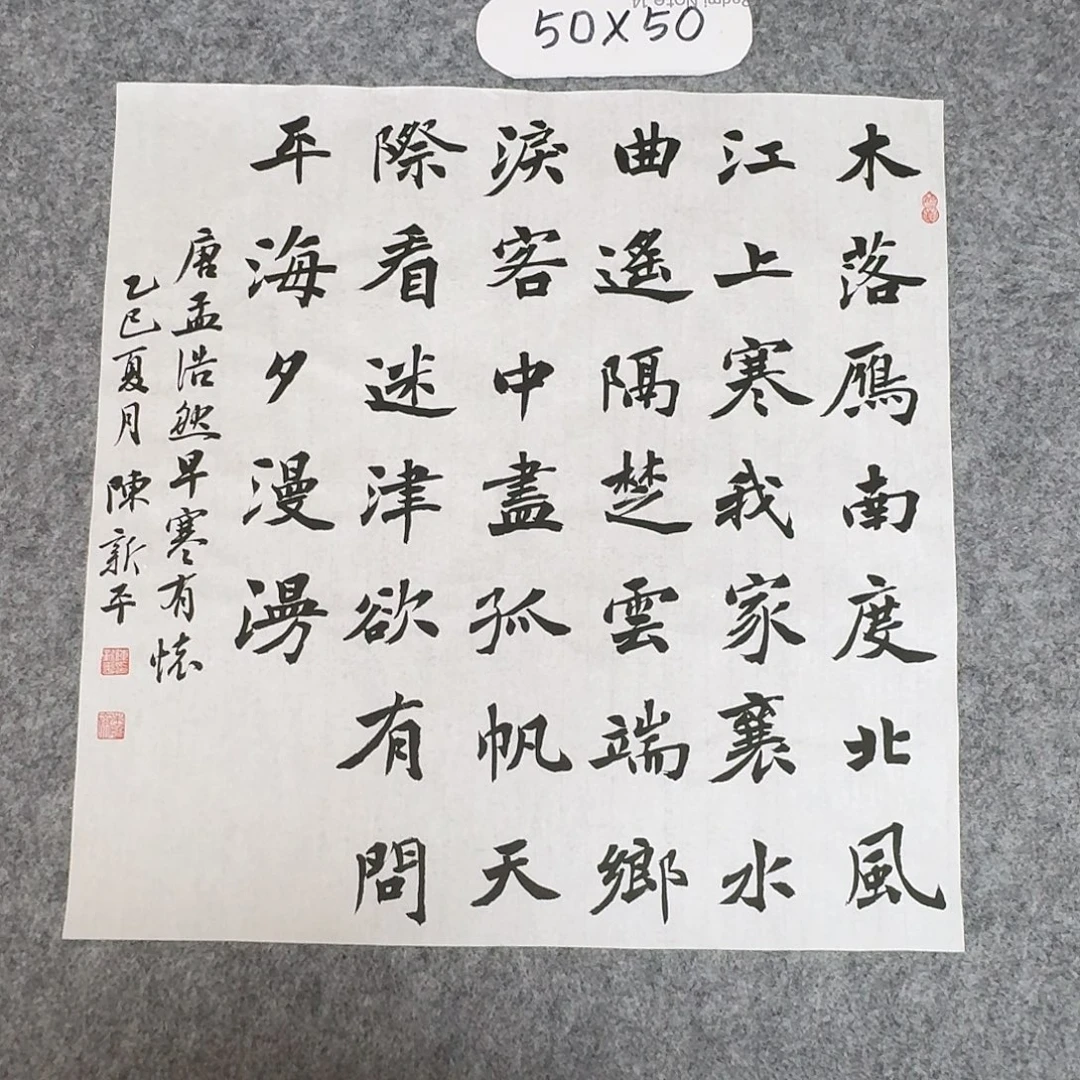 50X50
木落鴈南度北風
江上寒我家襄水
曲遙隔楚雲端鄉
淚客中盡孤帆天
際看迷津欲有問
平海夕漫漫
唐孟浩然早寒有懷
乙巳夏月陳新平